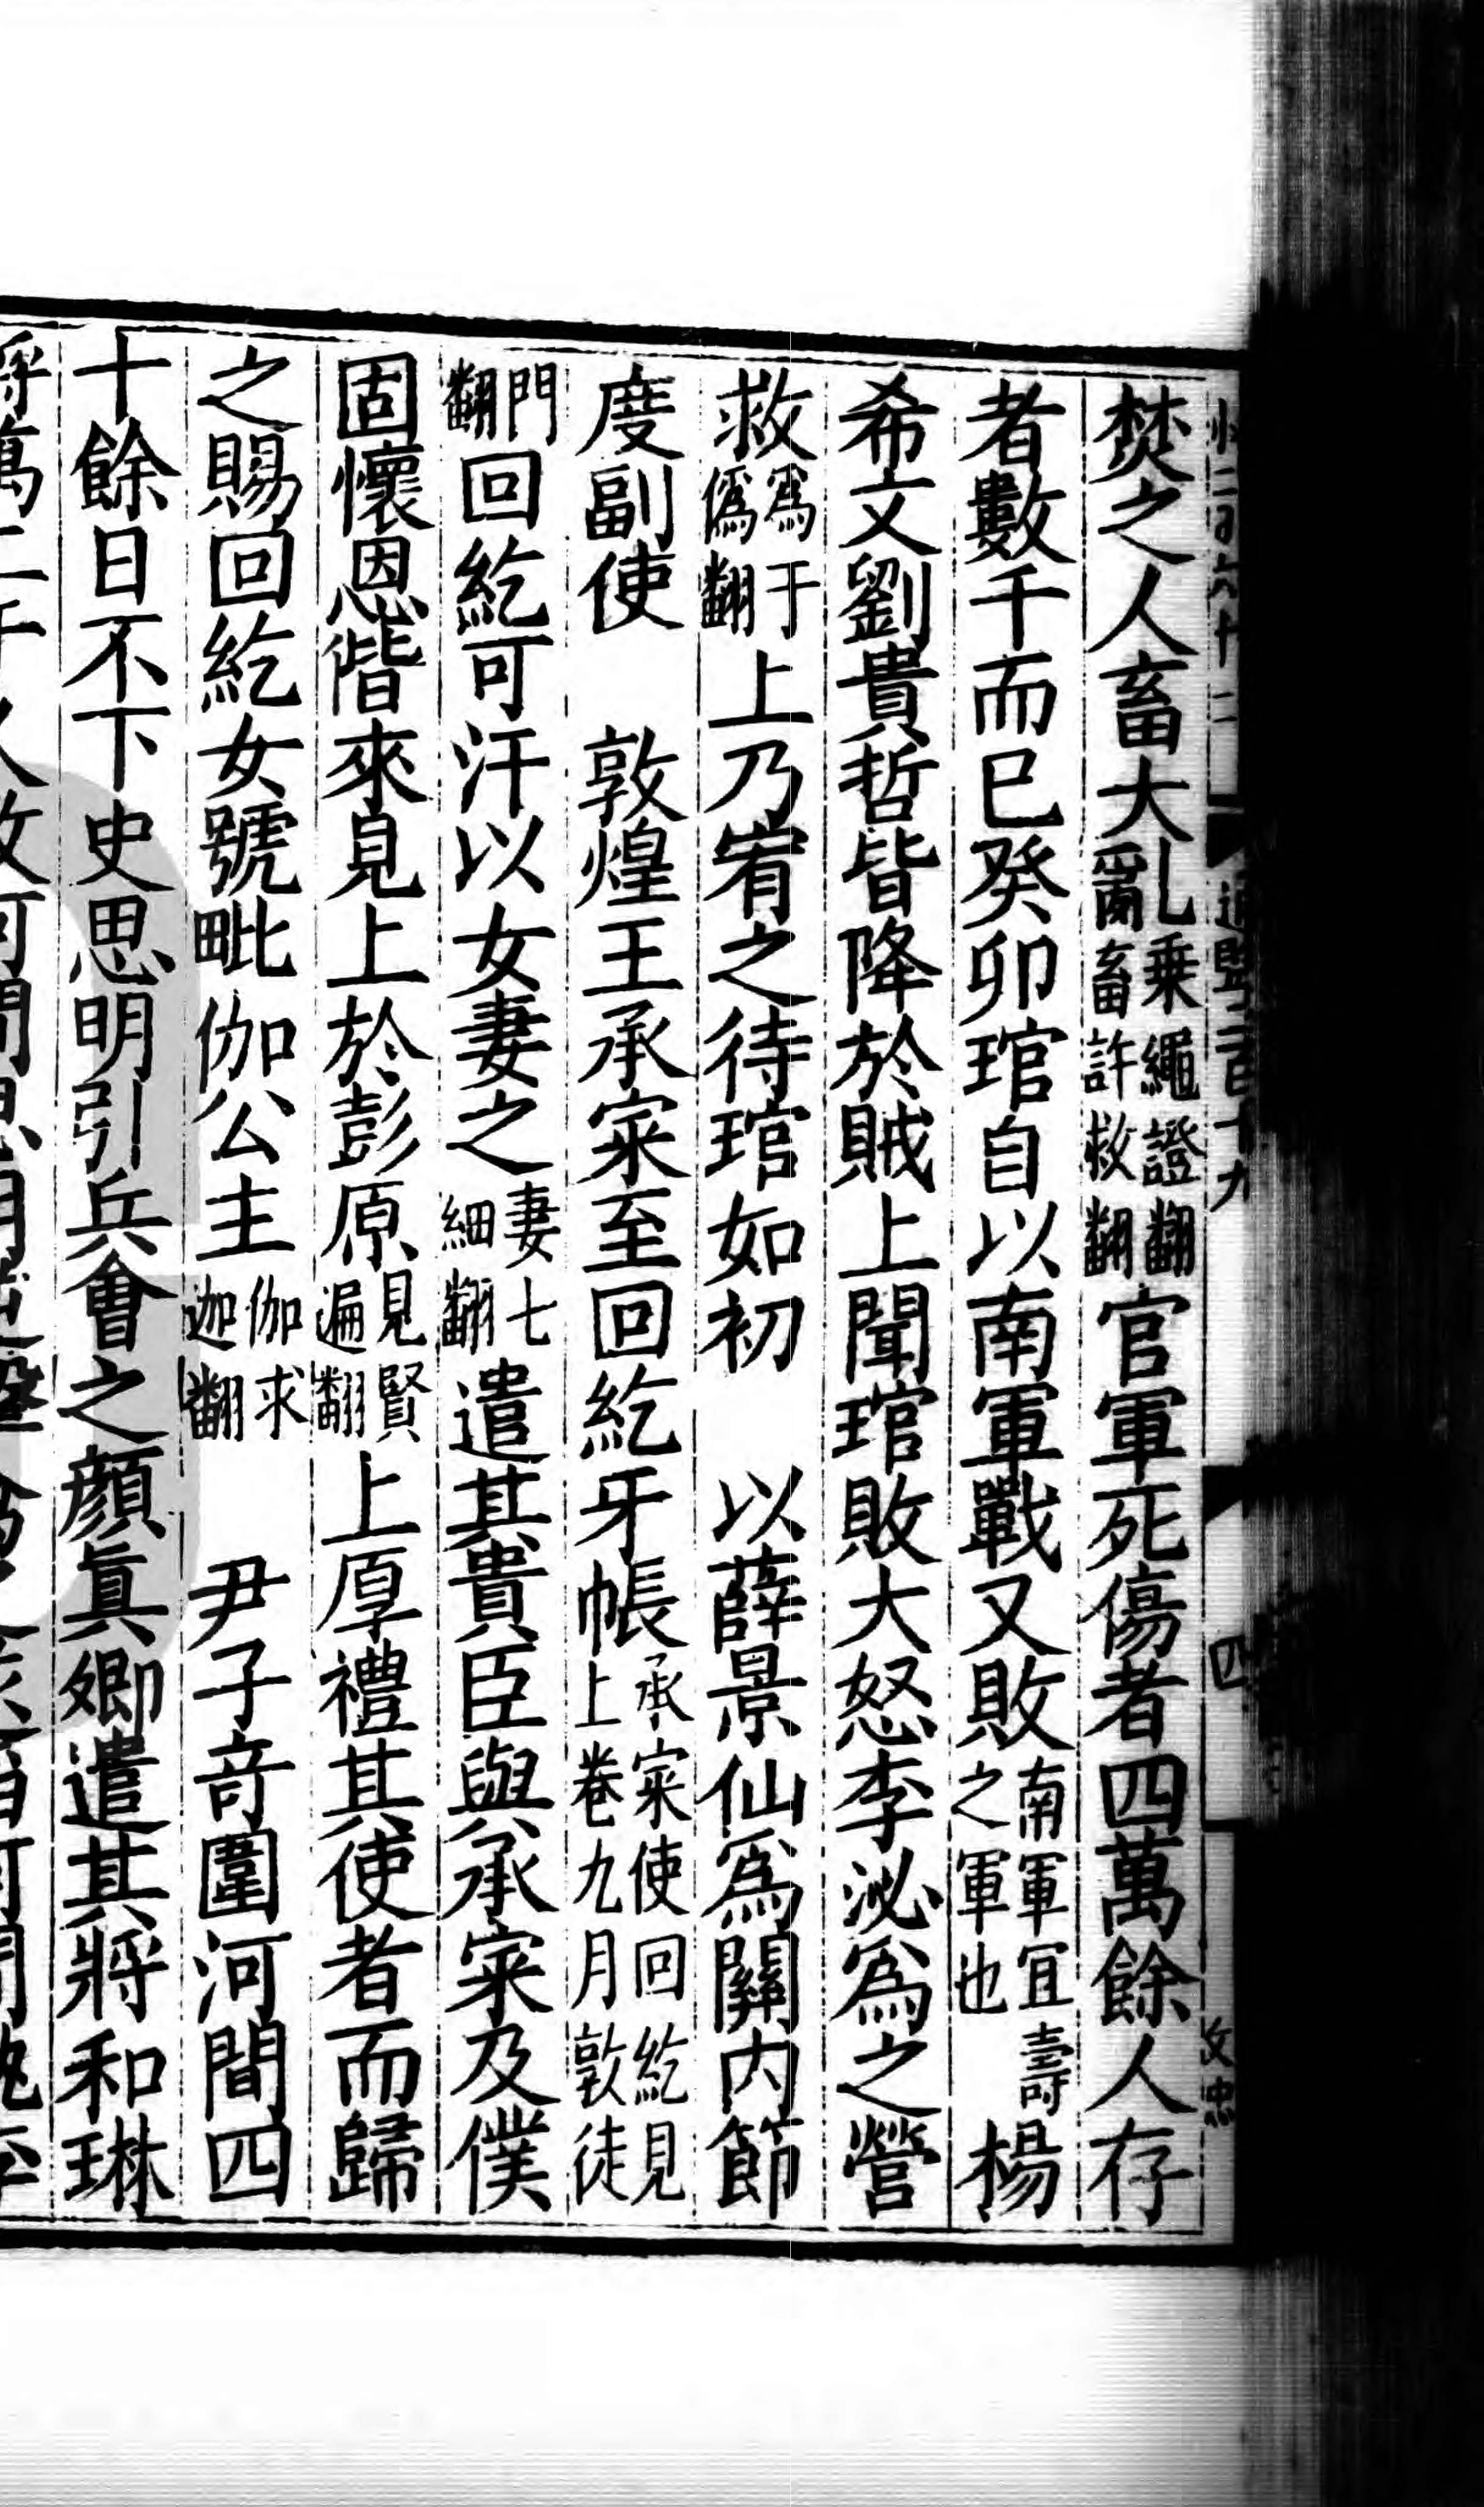 焚之人畜大乱乗繩證翻亂畜許救翻官軍死傷者四萬餘人存
者數千而已癸卯琯自以南軍戰又敗南軍宜壽之軍也楊
希文劉貴哲皆降於賊上聞琯敗大怒李泌爲之營
救爲于偽翻上乃宥之待琯如初　以薛景仙爲關内節
度副使　敦煌王承寀至回紇牙帳承寀使回紇見上巻九月敦徒
門翻回紇可汗以女妻之妻七細翻遣其貴臣與承寀及僕
固懷恩偕來見上於彭原見賢遍翻上厚禮其使者而歸
之賜回紇女號毗伽公主伽求迦翻　尹子竒圍河間四
十餘日不下史思明引兵會之顔眞卿遣其將和琳
將萬二千人救河間思明